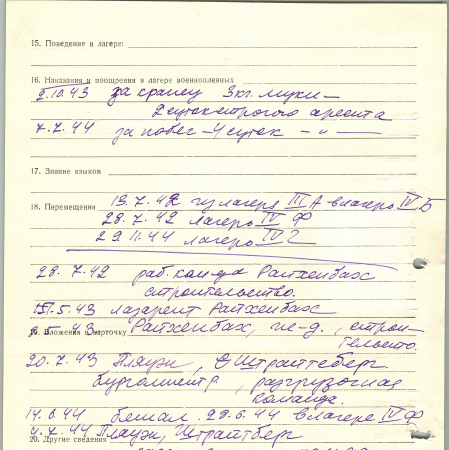 15. Поведение в лагере:
16. Наказания и поощрения в лагере военнопленных
2.10.43 за 3 кг. муки —
2 суток строгого ареста
7.7.44 за побег — 4 суток — „ —
17. Знание языков
18. Перемещения 13.7.42 из лагеря III А в лагерь IV Б
28.7.42 лагерь IV Ф
29.11.44 лагерь IV Г
28.7.42 раб. кои-да Райхенбах
строительство.
5.43 лазарет Райхенбах
19. Вложения в карточку 5.43 Райхенбах, ж-д., строи-
тельство
20.7.43 Плауэн, Штрайтсберг.
разгрузочная
команда.
14.6.44 бежал. 29.6.44 в лагере IV Ф
7.44 Плауэн, Штрайтберг
20. Другие сведения